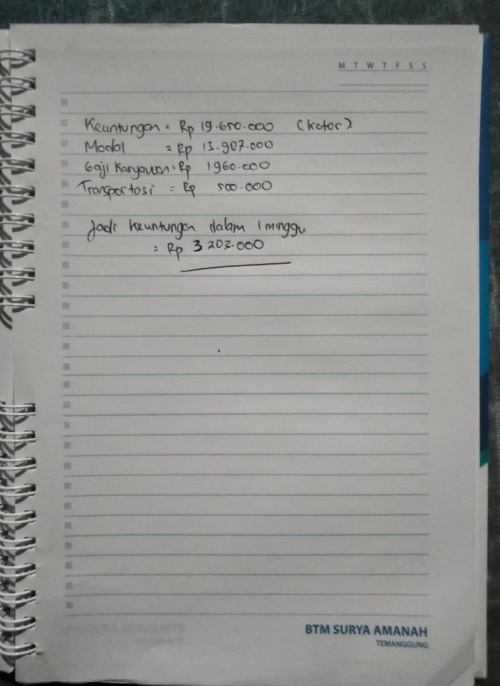 M T W T F S S
Keuntungan = Rp 19.650.000 (kotor)
Modal = Rp 13.987.000
Gaji Karyawan = Rp 1.960.000
Transportasi = Rp 500.000
Jadi keuntungan dalam 1 minggu
= Rp 3 203.000
BTM SURYA AMANAH
TEMANGGUNG